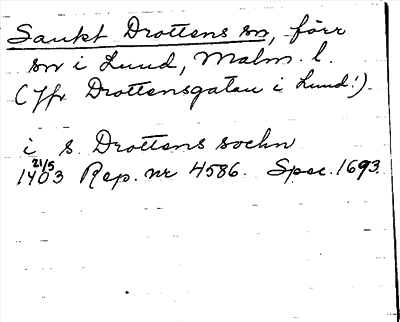 Sankt Drottens sn, förr
sn i Lund, Malm. l.
(Jfr Drottensgatan i Lund!).
i s. Drottens sochn
21/5
1403 Rep. nr 4586. Spec. 1693.